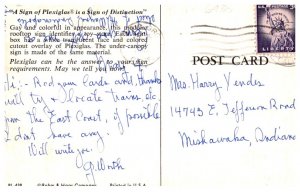 "A Sign of Plexiglas is a Sign of Distinction"
Gay and colorful in appearance, this modern
rooftop sign identifies
has a white translucent face and colored
cutout overlay of Plexiglas. The under-canopy
sign is made of the same material.
Plexiglas can be the answer to your sign
requirements. May we tell you
Hi: - Rod your cards and, thanks
will try & locate
from the East Coast, if possible
I don't have any.
Will write you.
PL-438
© Rohm & Haas Company
Printed in U.S.A.
U.S. POSTAGE
3¢
LIBERTY
POST CARD
Mrs Harry Yerdes
14743 E. Jefferson Road
Mishawaka, Indiana